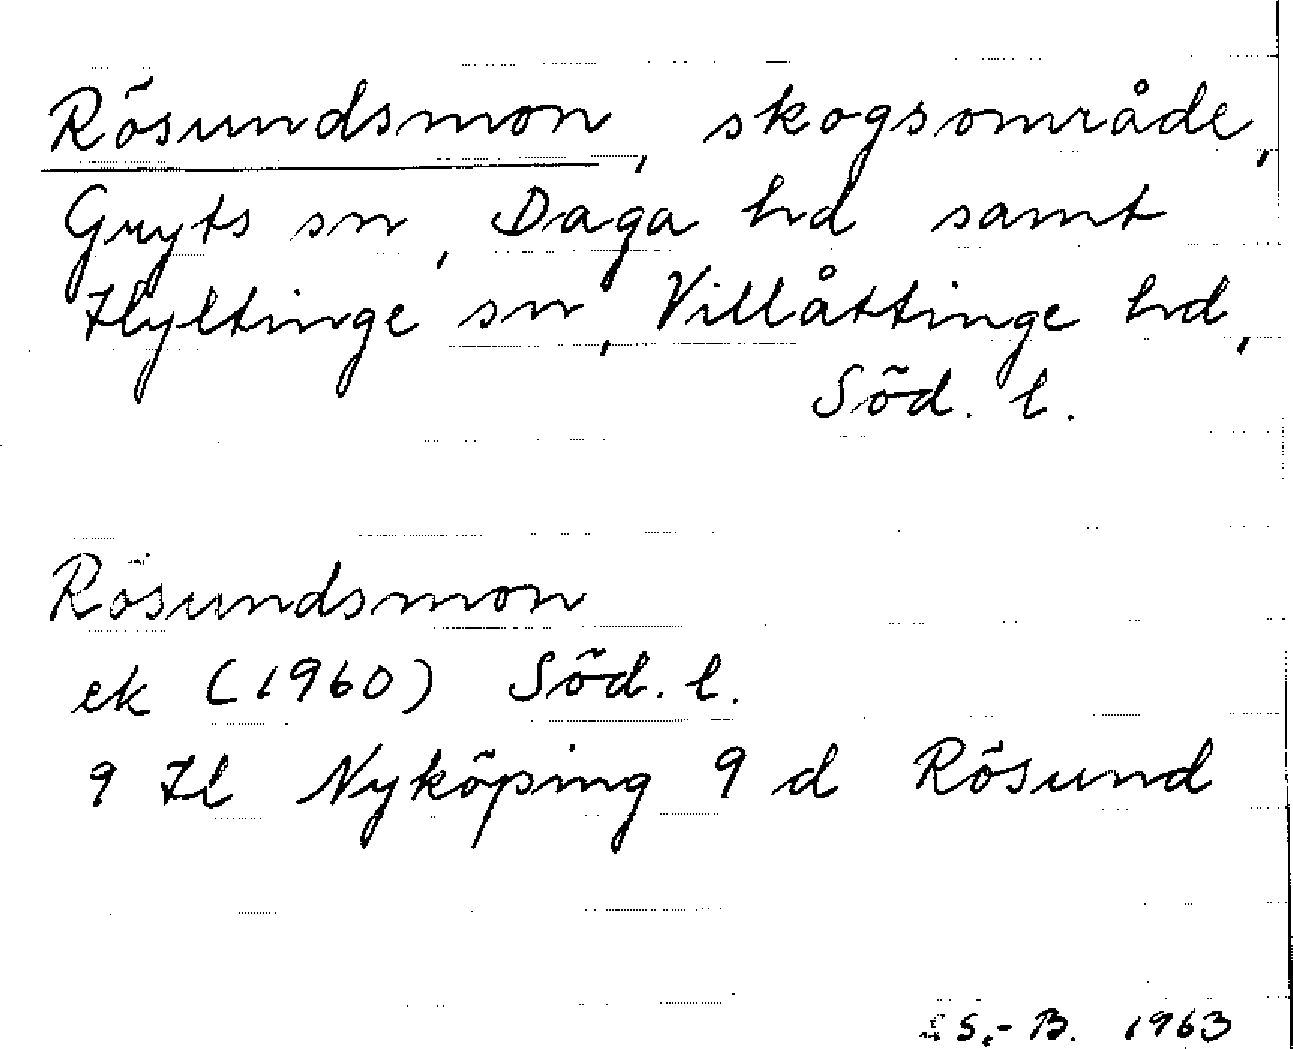 Rösundsmon, skogsområde,
Gryts sn, Daga hd samt
Hyltinge sn, Villåttinge hd,
Söd. l.
Rösundsmon
ek (1960) Söd. l.
9 H Nyköping 9 d Rösund
S.-B. 1963